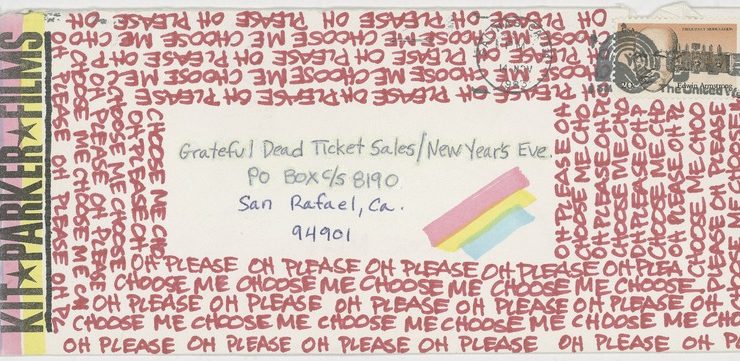 KIT★PARKER★FILMS
OH PLEASE OH PLEASE OH PLEASE OH PLEASE OH PLEASE OH
CHOOSE ME CHOOSE ME CHOOSE ME CHOOSE ME CHOOSE ME
OH PLEASE OH PLEASE OH PLEASE OH PLEASE OH PLEASE OH
CHOOSE ME CHOOSE ME CHOOSE ME CHOOSE ME CHOOSE ME
OH PLEASE OH PLEASE OH PLEASE OH PLEASE OH PLEASE OH
1983
FREQUENCY MODULATION
Edwin Armstrong
The United
OH PLEASE OH PLEASE OH PL
CHOOSE ME CHOOSE ME CH
OH PLEASE OH PLEASE OH
CHOOSE ME CHOOSE ME
OH PLEASE OH
CHOOSE ME CHO
Grateful Dead Ticket Sales/New Year's Eve.
PO Box c/s 8190
San Rafael, Ca.
94901
OH PLEASE OH
CHOOSE ME CHO
OH PLEASE OH
CHOOSE ME CHO
OH PLEASE OH
CHOOSE ME CHOO
OH PLEASE OH PLEASE OH PLEASE OH PLEASE OH PLEA
CHOOSE ME CHOOSE ME CHOOSE ME CHOOSE ME CHOOSE
OH PLEASE OH PLEASE OH PLEASE OH PLEASE OH PLEASE OH
CHOOSE ME CHOOSE ME CHOOSE ME CHOOSE ME CHOOSE ME CHO
OH PLEASE OH PLEASE OH PLEASE OH PLEASE OH PLEASE OH P